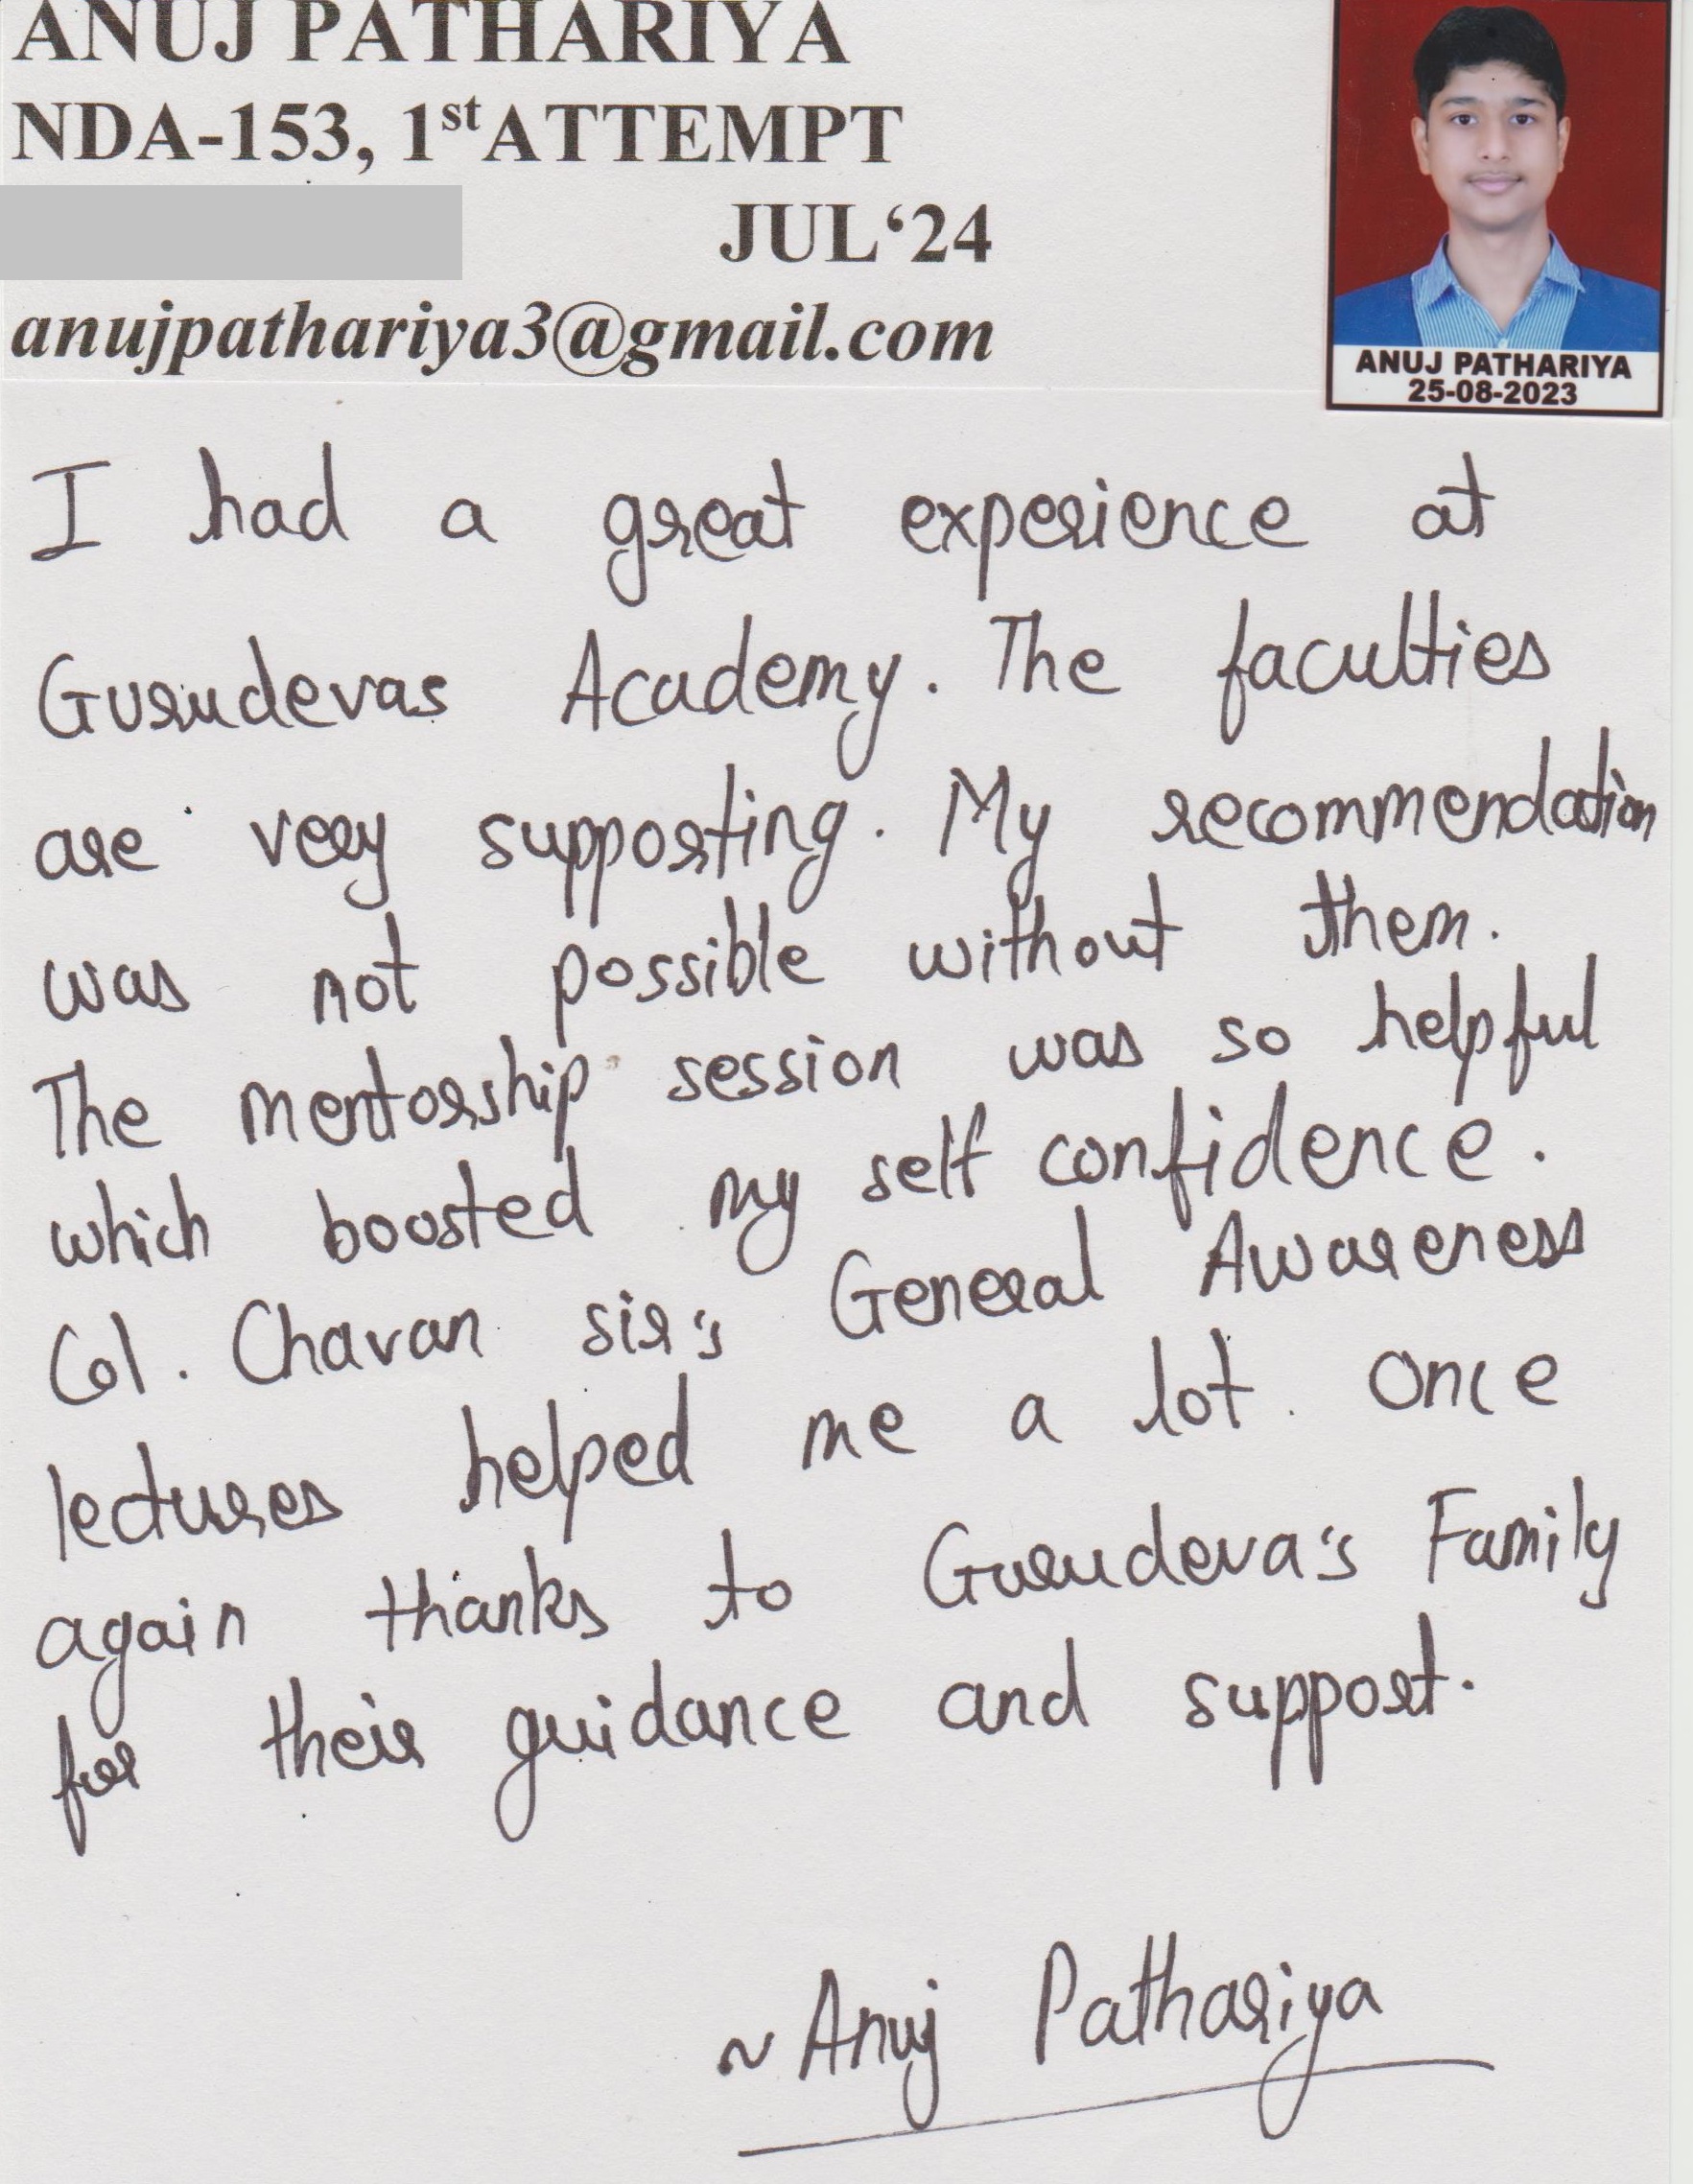 ANUJ PATHARIYA
NDA-153, 1st ATTEMPT
JUL‘24
anujpathariya3@gmail.com
ANUJ PATHARIYA
25-08-2023
I had a great experience at
Gurudevas Academy. The faculties
are very supporting. My recommendation
was not possible without them.
The mentorship session was so helpful
which boosted my self confidence.
Col. Chavan sir's General Awareness
lectures helped me a lot. Once
again thanks to Gurudeva's Family
for their guidance and support.
~ Anuj Pathariya